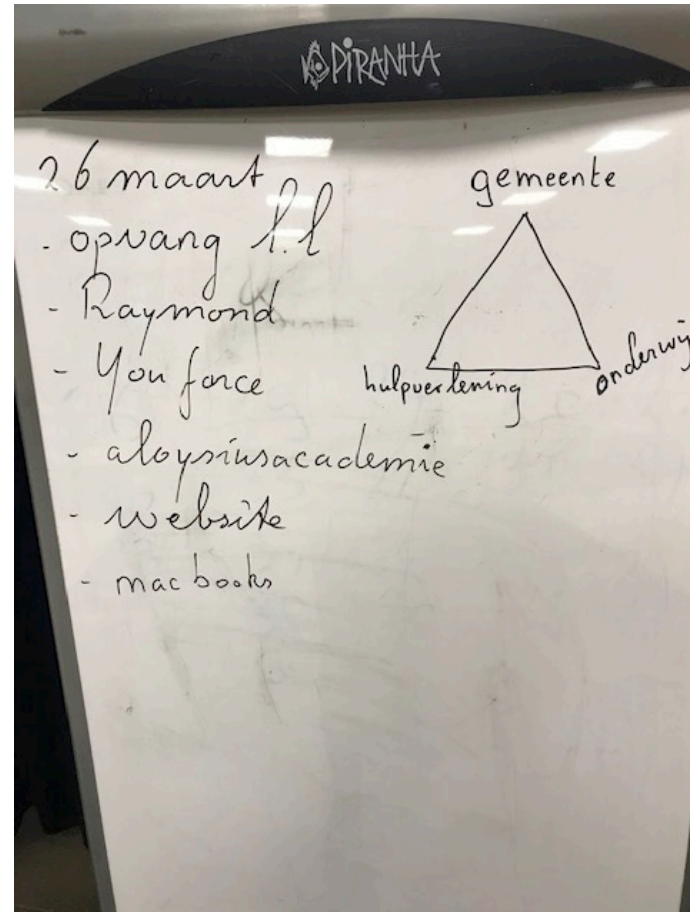 PIRANHA
26 maart
- opvang l.l
- Raymond
- You force
- aloysiusacademie
- website
- mac books
gemeente
hulpverlening
onderwij